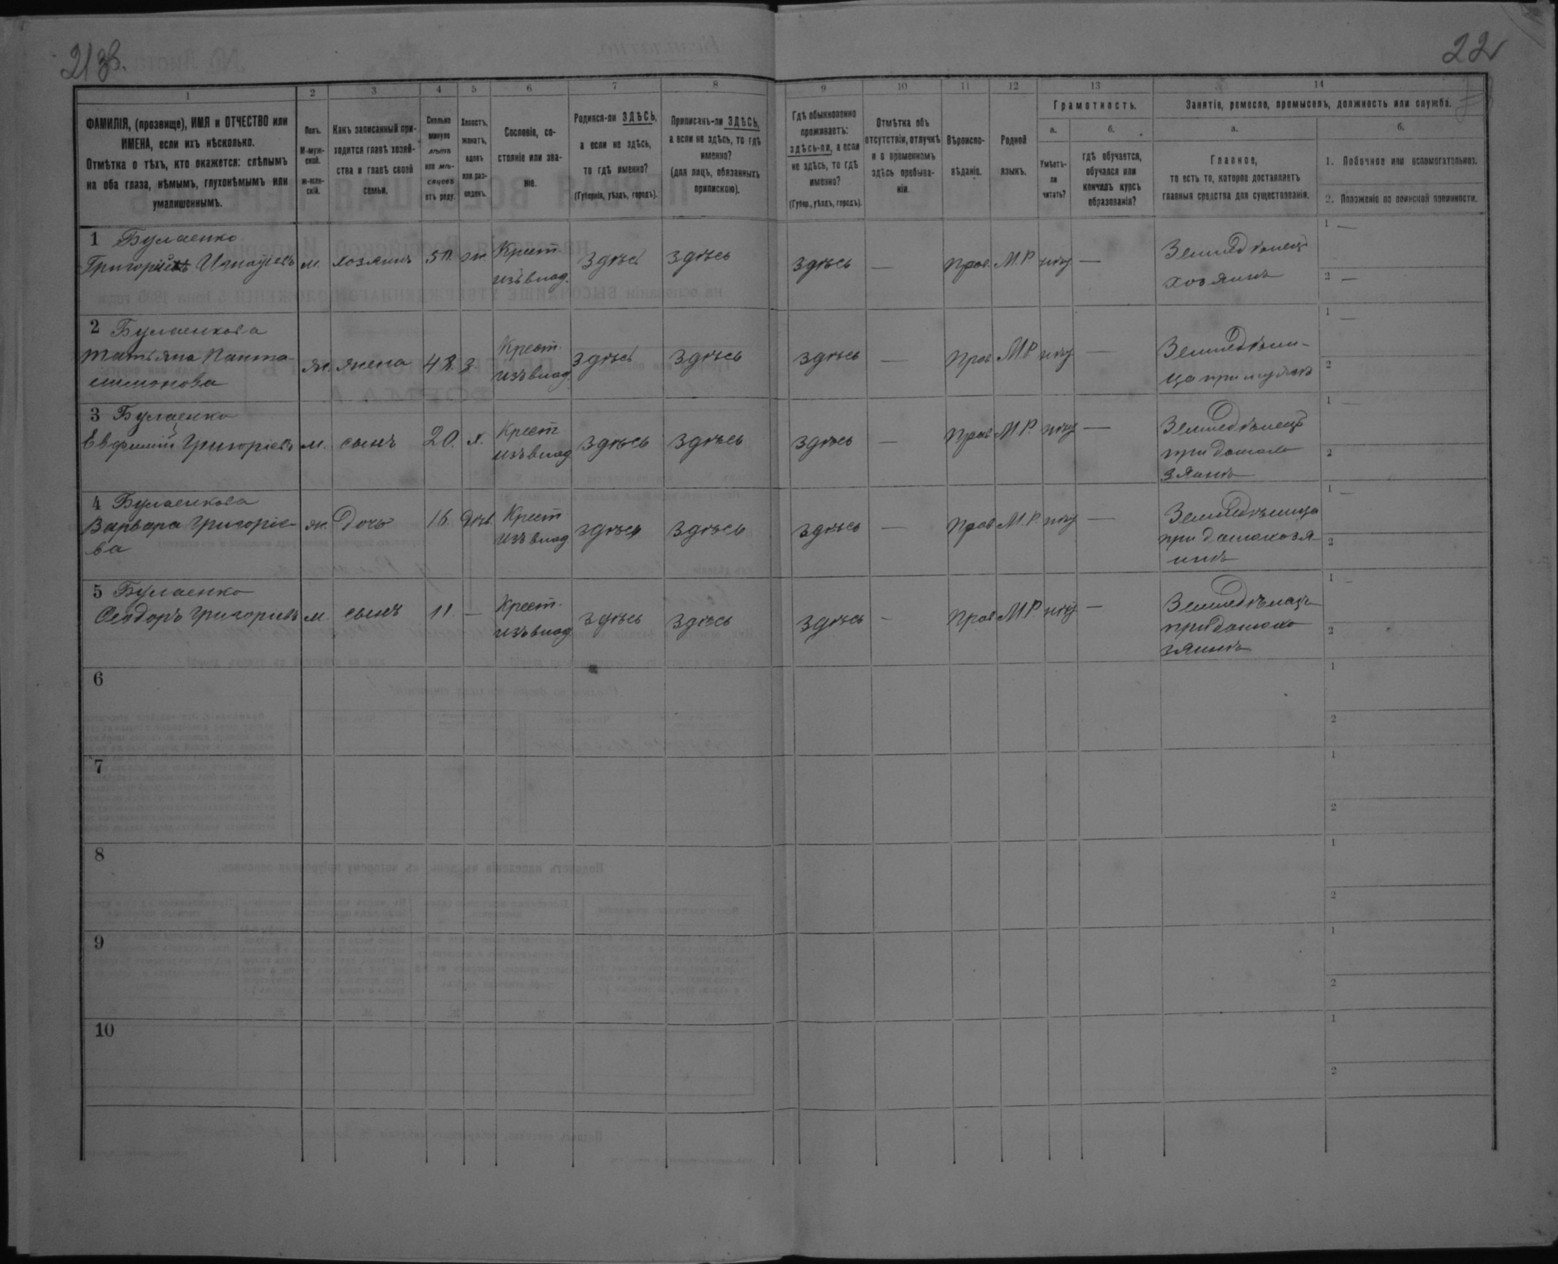 21 об.
22
1
2
3
4
5
6
7
8
9
10
11
12
13
14
ФАМИЛІЯ, (прозвище), ИМЯ и ОТЧЕСТВО или
ИМЕНА, если ихъ нѣсколько.
Отмѣтка о тѣхъ, кто окажется: слѣпымъ
на оба глаза, нѣмымъ, глухонѣмымъ или
умалишеннымъ.
Полъ.
М-муж-
ской.
Ж-жен-
скій.
Какъ записанный при-
ходится главѣ хозяй-
ства и главѣ своей
семьи.
Сколько
минуло
лѣтъ
или мѣ-
сяцевъ
отъ роду.
Холостъ,
женатъ,
вдовъ
или раз-
веденъ.
Сословіе, со-
стояніе или зва-
ніе.
Родился-ли ЗДѢСЬ,
а если не здѣсь,
то гдѣ именно?
(Губернія, уѣздъ, городъ).
Приписанъ-ли ЗДѢСЬ,
а если не здѣсь, то гдѣ
именно?
(для лицъ, обязанныхъ
припискою).
Гдѣ обыкновенно
проживаетъ:
здѣсь-ли, а если
не здѣсь, то гдѣ
именно?
(Губер., уѣздъ, городъ).
Отмѣтка объ
отсутствіи, отлучкѣ
и о временномъ
здѣсь пребыва-
ніи.
Вѣроиспо-
вѣданіе.
Родной
языкъ.
Грамотность.
а.
Умѣетъ-
ли
читать?
б.
гдѣ обучается,
обучался или
кончилъ курсъ
образованія?
Занятіе, ремесло, промыселъ, должность или служба.
а.
Главное,
то есть то, которое доставляетъ
главныя средства для существованія.
б.
1. Побочное или вспомогательное.
2. Положеніе по воинской повинности.
1 Булаенко
Григорій
м. хозяинъ 50 ж. Крест. изъ влад. здѣсь здѣсь здѣсь — Прав. М.Р нѣт —
Земледѣлецъ
хозяинъ
1 —
2 —
2 Булаенкова
Татьяна Панта-
лимонова
ж. жена 48. з. Крест. изъ влад здѣсь здѣсь здѣсь — Прав М.Р нѣт —
Земледѣли-
ца при мужѣ
1 —
2
3 Булаенко
Евфимій Григорьевъ
м. сынъ 20. х. Крест изъ влад здѣсь здѣсь здѣсь — Прав М.Р. нѣт —
Земледѣлецъ
при домохо
зяинѣ
1 —
2
4 Булаенкова
Варвара Григоріе-
ва
ж. Дочь 16. Дѣв. Крест изъ влад здѣсь здѣсь здѣсь — Прав М.Р нѣт —
Земледѣлица
при домохозя
инѣ
1 —
2
5 Булаенко
Ѳеодоръ Григорьевъ
м. сынъ 11. — Крест. изъ влад здѣсь здѣсь здѣсь - Прав М.Р нѣт —
при домохо
зяинѣ
1 -
2
6
1
2
7
1
2
8
1
2
9
1
2
10
1
2